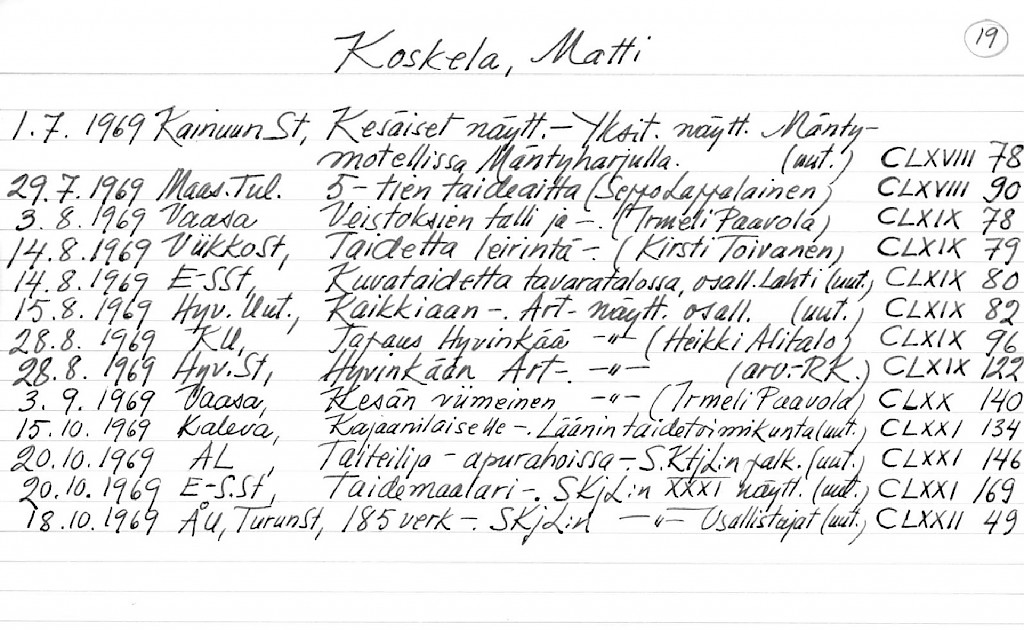 19
Koskela, Matti
1.7. 1969 Kainuun St, Kesäiset näytt.– Yksit. näytt. Mänty-
motellissa Mäntyharjulla. (uut.) CLXVIII 78
29.7.1969 Maas.Tul. 5-tien taideaitta (Seppo Lappalainen) CLXVIII 90
3.8.1969 Vaasa Veistoksien talli ja –. (Irmeli Paavola) CLXIX 78
14.8.1969 ViikkoSt, Taidetta leirintä–. (Kirsti Toivanen) CLXIX 79
14.8.1969 E-SSt, Kuvataidetta tavaratalossa, osall. Lahti (uut.) CLXIX 80
15.8.1969 Hyv. Uut., Kaikkiaan –. Art– näytt. osall. (uut.) CLXIX 82
28.8. 1969 KU, Tapaus Hyvinkää –"– (Heikki Alitalo) CLXIX 96
28.8. 1969 Hyv.St, Hyvinkään Art–. –"– (arv.–RK.) CLXIX 122
3.9.1969 Vaasa, Kesän viimeinen –"– (Irmeli Paavola) CLXX 140
15.10.1969 Kaleva, Kajaanilaiselle –. Läänin taidetoimikunta (uut.) CLXXI 134
20.10.1969 AL, Taiteilija – apurahoissa –. S.KtjL:n palk. (uut.) CLXXI 146
20.10.1969 E-S.St, Taidemaalari –. SKjL:n XXXI näytt. (uut.) CLXXI 169
18.10.1969 ÅU, TurunSt, 185 verk –. SKjL:n –"– Osallistujat (uut.) CLXXII 49